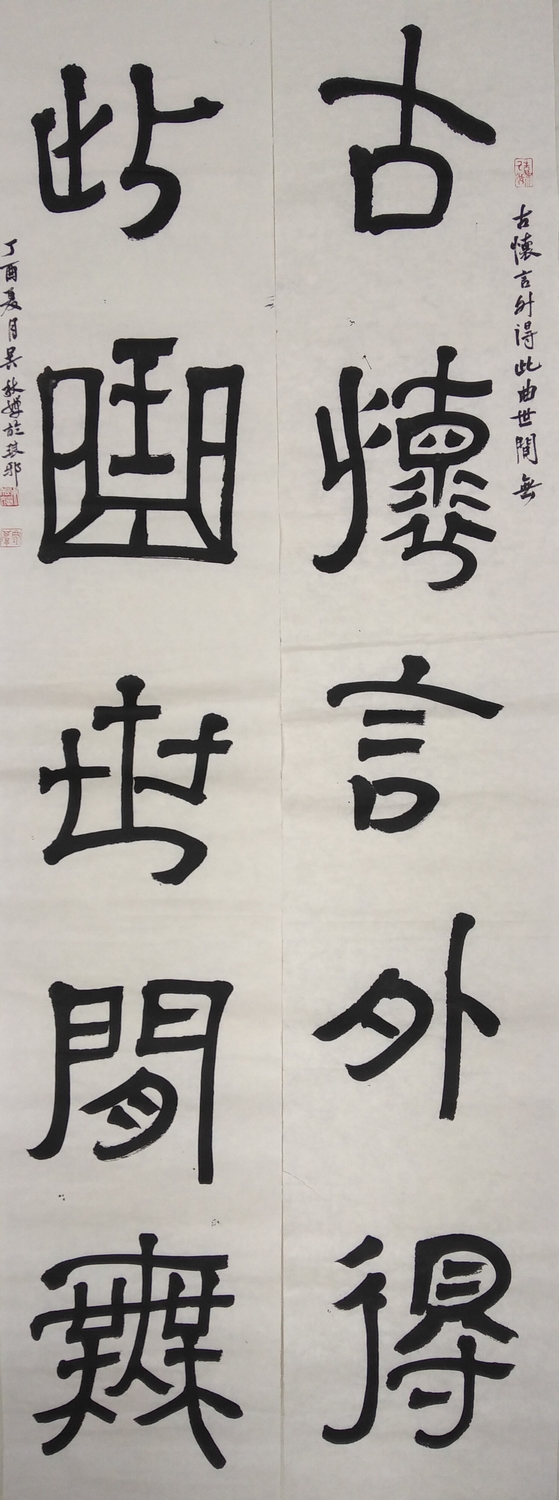 古懷言外得此曲世間無
古懷言外得
此曲世間無
丁酉夏月吴於琅邪